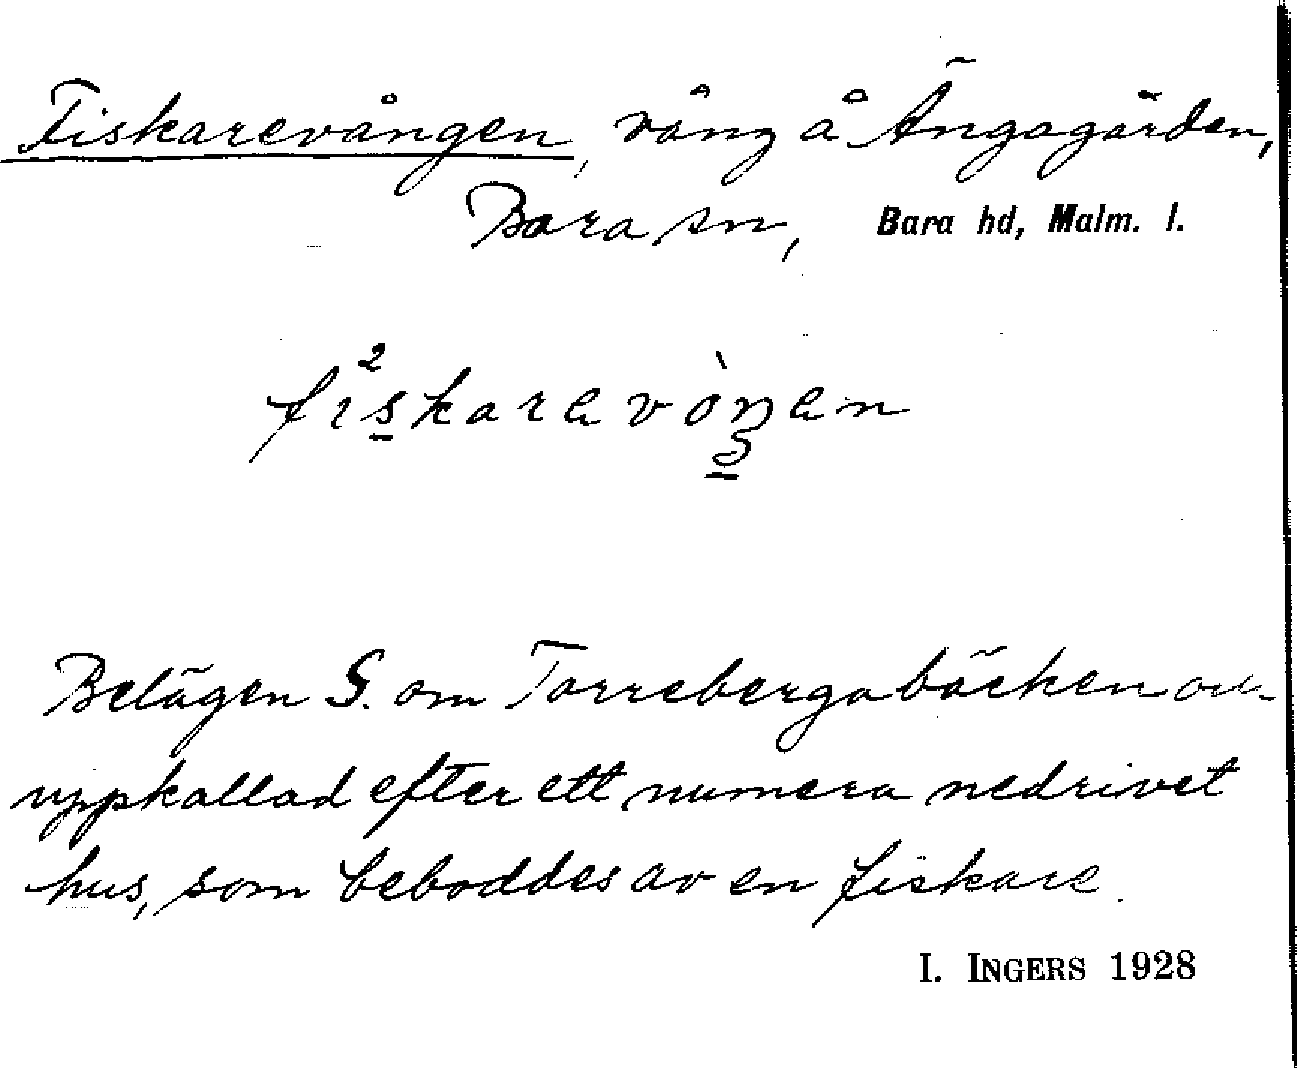 Fiskarevången, vång å Ängagården,
Bara sn, Bara hd, Malm. l.
fi²skarevòŋen
Belägen S. om Torrebergabäcken
uppkallad efter ett numera nedrivet
hus, som beboddes av en fiskare.
I. INGERS 1928